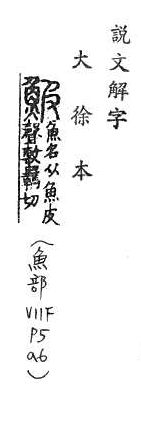 說文解字
大徐本
鮍
魚名从魚皮
聲敷羈切
(魚部 VIIF P5 a6)